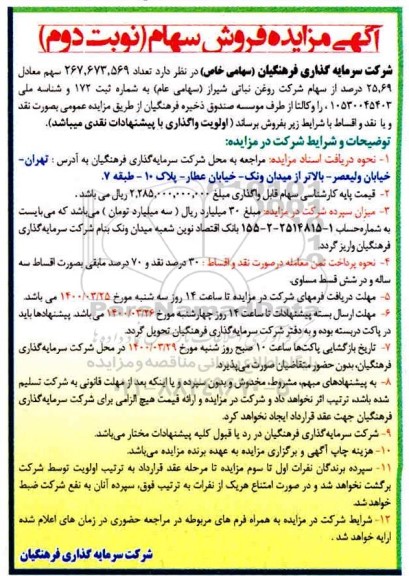 آگهی مزایده فروش سهام (نوبت دوم)
شرکت سرمایه گذاری فرهنگیان (سهامی خاص) در نظر دارد تعداد ۲۶۷,۶۷۳,۵۶۹ سهم معادل
۲۵,۶۹ درصد از سهام شرکت روغن نباتی شیراز (سهامی عام) به شماره ثبت ۱۷۲ و شناسه ملی
۱۰۵۳۰۰۴۵۴۰۳ را وکالتا از طرف موسسه صندوق ذخیره فرهنگیان از طریق مزایده عمومی بصورت نقد
و یا نقد و اقساط با شرایط زیر بفروش برساند (اولویت واگذاری با پیشنهادات نقدی میباشد).
توضیحات و شرایط شرکت در مزایده:
۱- نحوه دریافت اسناد مزایده: مراجعه به محل شرکت سرمایه‌گذاری فرهنگیان به آدرس: تهران-
خیابان ولیعصر- بالاتر از میدان ونک- خیابان عطار- پلاک ۱۰ - طبقه ۷.
۲- قیمت پایه کارشناسی سهام قابل واگذاری مبلغ ۲,۲۸۵,۰۰۰,۰۰۰,۰۰۰ ریال می باشد.
۳- میزان سپرده شرکت در مزایده: مبلغ ۳۰ میلیارد ریال (سه میلیارد تومان) می‌باشد که می‌بایست
به شماره‌حساب ۱-۲۵۱۴۸۱۵-۲-۱۵۵ بانک اقتصاد نوین شعبه میدان ونک بنام شرکت سرمایه‌گذاری
فرهنگیان واریز گردد.
۴- نحوه پرداخت ثمن معامله درصورت نقد و اقساط: ۳۰ درصد نقد و ۷۰ درصد مابقی بصورت اقساط سه
ساله و در شش قسط مساوی.
۵- مهلت دریافت فرمهای شرکت در مزایده تا ساعت ۱۴ روز سه شنبه مورخ ۱۴۰۰/۰۳/۲۵ می باشد.
۶- مهلت ارسال بسته پیشنهادات تا ساعت ۱۴ روز چهارشنبه مورخ ۱۴۰۰/۰۳/۲۶ می باشد. پیشنهادها باید
در پاکت دربسته بوده و به دفتر شرکت سرمایه‌گذاری فرهنگیان تحویل گردد.
۷- تاریخ بازگشایی پاکت‌ها ساعت ۱۰ صبح روز شنبه مورخ ۱۴۰۰/۰۳/۲۹ در محل شرکت سرمایه‌گذاری
فرهنگیان، بدون حضور متقاضیان صورت می‌پذیرد.
۸- به پیشنهادهای مبهم، مشروط، مخدوش و بدون سپرده و یا اینکه بعد از مهلت قانونی به شرکت تسلیم
شده باشد، ترتیب اثر نخواهد داد و شرکت در مزایده و ارائه قیمت هیچ الزامی برای شرکت سرمایه‌گذاری
فرهنگیان جهت عقد قرارداد ایجاد نخواهد کرد.
۹- شرکت سرمایه‌گذاری فرهنگیان در رد یا قبول کلیه پیشنهادات مختار می‌باشد.
۱۰- هزینه چاپ آگهی و برگزاری مزایده به عهده برنده مزایده می‌باشد.
۱۱- سپرده برندگان نفرات اول تا سوم مزایده تا مرحله عقد قرارداد به ترتیب اولویت توسط شرکت
برگشت نخواهد شد و در صورت امتناع هریک از نفرات به ترتیب فوق، سپرده آنان به نفع شرکت ضبط
خواهد شد.
۱۲- شرایط شرکت در مزایده به همراه فرم های مربوطه در مراجعه حضوری در زمان های اعلام شده
ارایه خواهد شد.
شرکت سرمایه گذاری فرهنگیان